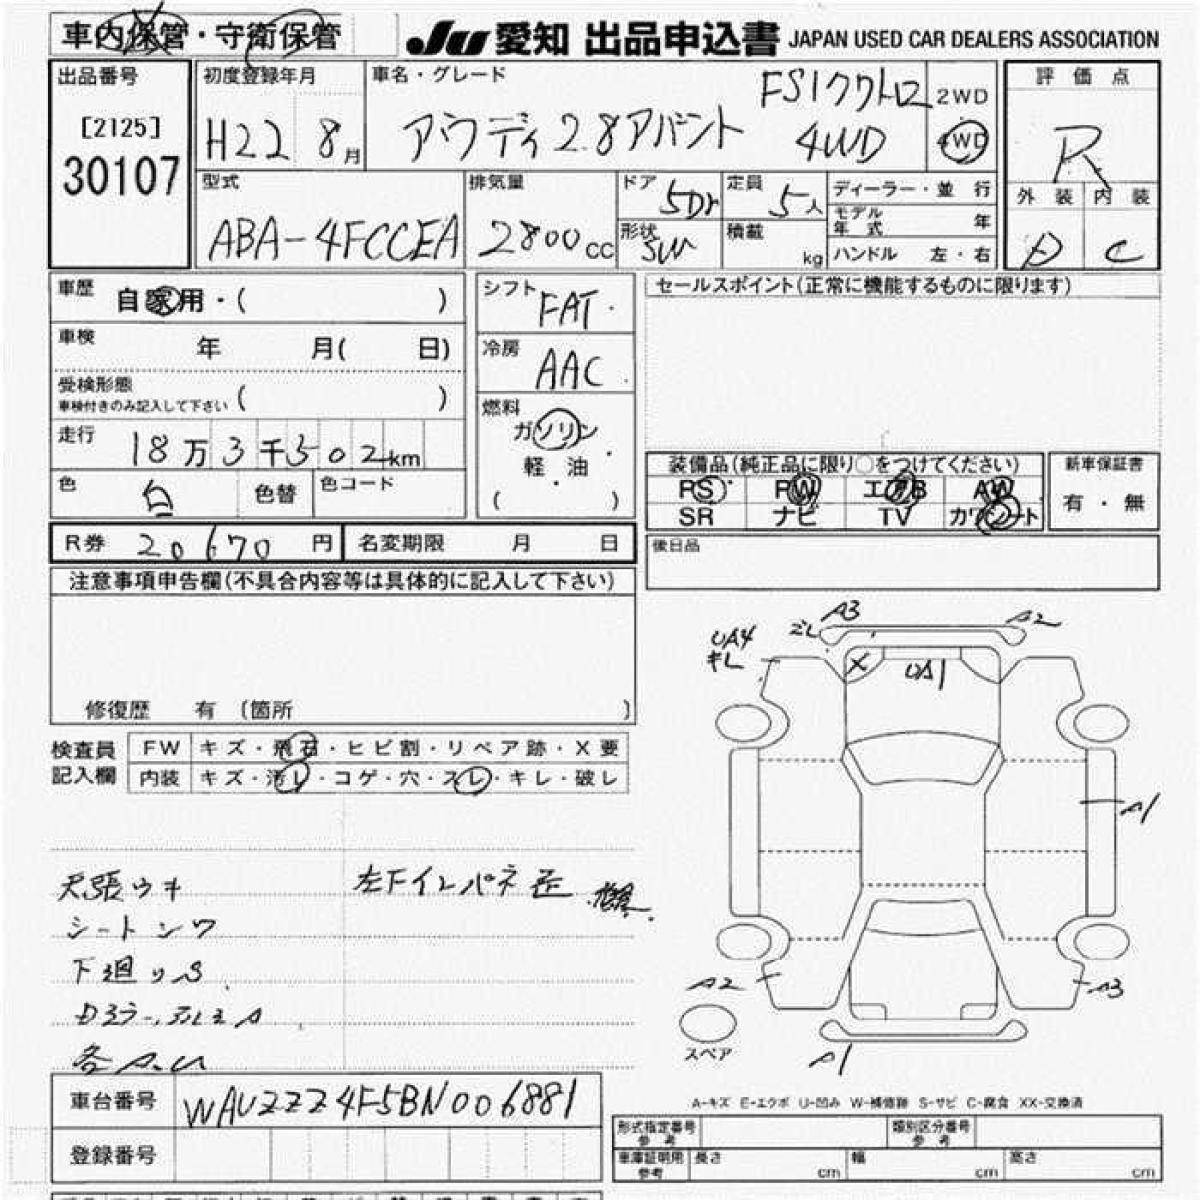 車内保管・守衛保管
JU 愛知 出品申込書 JAPAN USED CAR DEALERS ASSOCIATION
出品番号
[2125]
30107
初度登録年月
H22 8月
車名・グレード
FSIクワトロ
アウディ 2.8アバント 4WD
2WD
4WD
評価点
R
外装 内装
D C
型式
ABA-4FCCEA
排気量
2800cc
ドア 5Dr
形状 SW
定員 5人
積載 kg
ディーラー・並行
モデル年式 年
ハンドル 左・右
車歴 自家用・( )
車検 年 月( 日)
受検形態
車検付きのみ記入して下さい ( )
走行 18万3千302km
色 白 色替 色コード
シフト FAT
冷房 AAC
燃料
ガソリン
軽油
( ・ )
セールスポイント(正常に機能するものに限ります)
装備品(純正品に限り○をつけてください)
PS PW エアB AW
SR ナビ TV カワシート
新車保証書
有・無
後日品
R券 20670円 名変期限 月 日
注意事項申告欄(不具合内容等は具体的に記入して下さい)
修復歴 有 〔箇所 〕
検査員記入欄
FW キズ・飛石・ヒビ割・リペア跡・X要
内装 キズ・汚レ・コゲ・穴・スレ・キレ・破レ
天張ウキ
シートシワ
下廻りS
各A.U
左Fインパネ歪
A3
ズレ
A2
UA4
キレ
X
UA1
A1
A2
A3
A1
スペア
A-キズ E-エクボ U-凹み W-補修跡 S-サビ C-腐食 XX-交換済
車台番号 WAUZZZ4F5BN006881
登録番号
形式指定番号参考
類別区分番号参考
車庫証明用参考 長さ cm 幅 cm 高さ cm